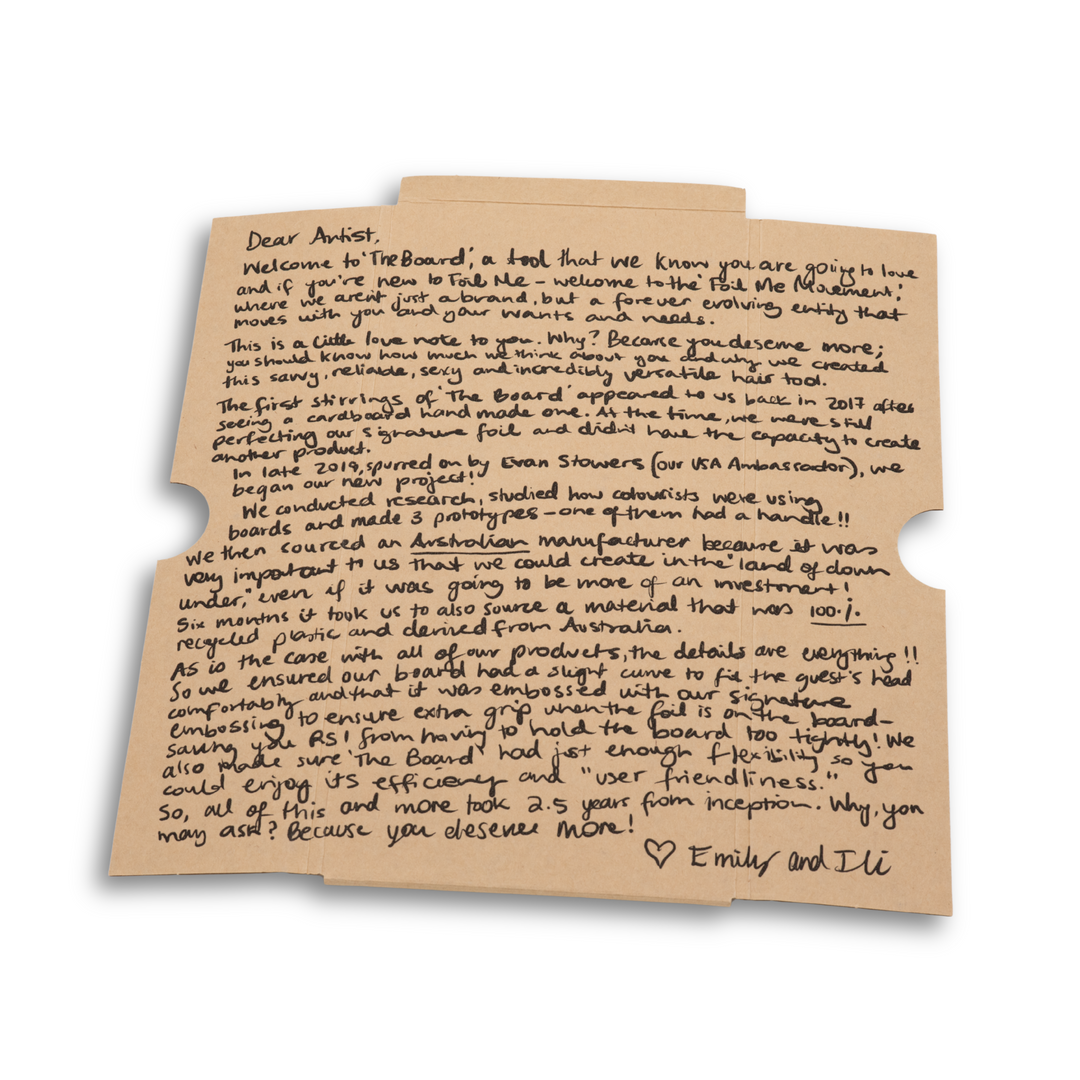 Dear Artist,
Welcome to 'The Board', a tool that we know you are going to love
and if you're new to Foil Me - welcome to the 'Foil Me Movement'
where we aren't just a brand, but a forever evolving entity that
moves with you and your wants and needs.
This is a little love note to you. Why? Because you deserve more;
you should know how much we think about you and why we created
this savvy, reliable, sexy and incredibly versatile hair tool.
The first stirrings of 'The Board' appeared to us back in 2017 after
seeing a cardboard hand made one. At the time, we were still
perfecting our signature foil and didn't have the capacity to create
another product.
In late 2019, spurred on by Evan Stowers (our USA Ambassador), we
began our new project!
We conducted research, studied how colourists were using
boards and made 3 prototypes - one of them had a handle!!
We then sourced an Australian manufacturer because it was
very important to us that we could create in the "land of down
under," even if it was going to be more of an investment!
Six months it took us to also source a material that was 100%
recycled plastic and derived from Australia.
As is the case with all of our products, the details are everything!!
So we ensured our board had a slight curve to fit the guest's head
comfortably and that it was embossed with our signature
embossing to ensure extra grip when the foil is on the board-
saving you RSI from having to hold the board too tightly! We
also made sure 'The Board' had just enough flexibility so you
could enjoy its efficiency and "user friendliness."
So, all of this and more took 2.5 years from inception. Why, you
may ask? Because you deserve more!
♡ Emily and Ili